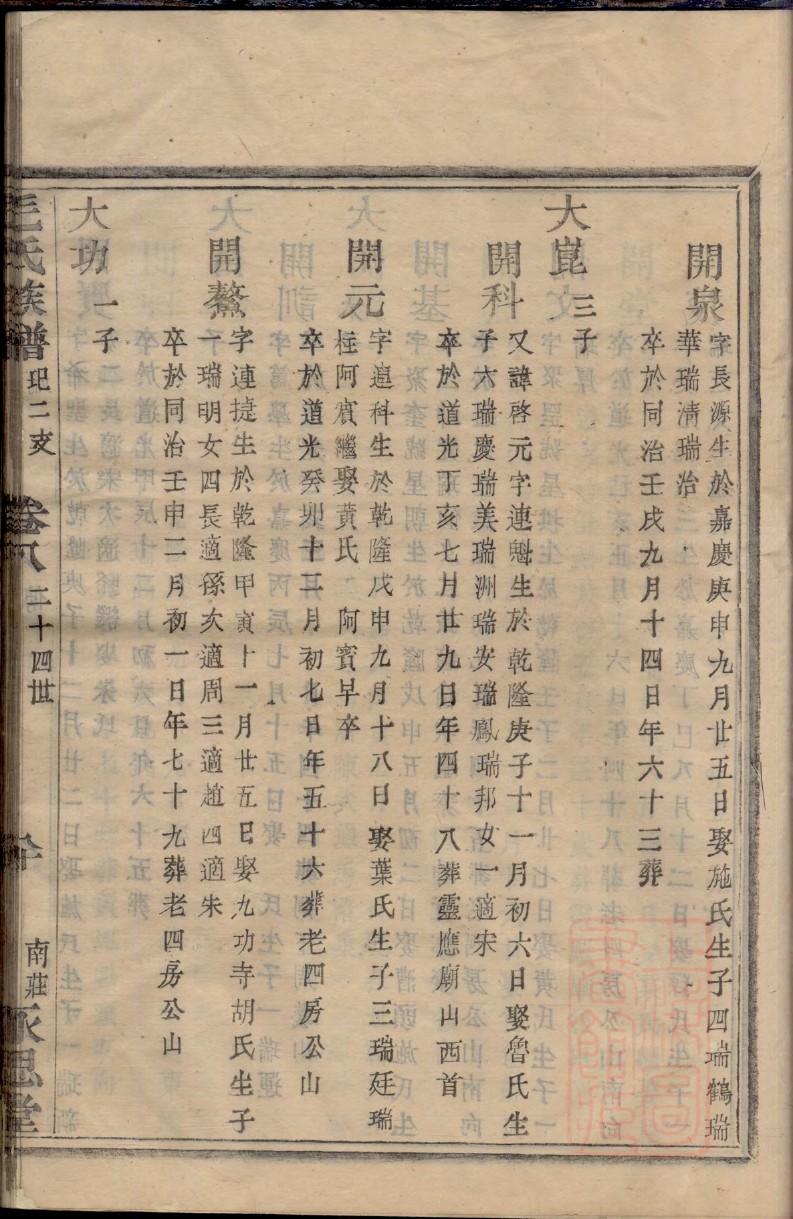 開泉
字長源生於嘉慶庚申九月廿五日娶施氏生子四瑞鶴瑞
華瑞清瑞治
卒於同治壬戌九月十四日年六十三葬
大崑 三子
開科
又諱啓元字連魁生於乾隆庚子十一月初六日娶魯氏生
子六瑞慶瑞美瑞洲瑞安瑞鳳瑞邦女一適宋
卒於道光丁亥七月廿九日年四十八葬靈應廟山西首
開元
字連科生於乾隆戊申九月十八日娶葉氏生子三瑞廷瑞
枉阿賓繼娶黃氏 阿賓早卒
卒於道光癸卯十二月初七日年五十六葬老四房公山
開鰲
字連捷生於乾隆甲寅十一月廿五日娶九功寺胡氏生子
一瑞明女四長適孫次適周三適趙四適朱
卒於同治壬申二月初一日年七十九葬老四房公山
大功 一子
毛氏族譜 玘二支 卷八 二十四世 南莊永思堂